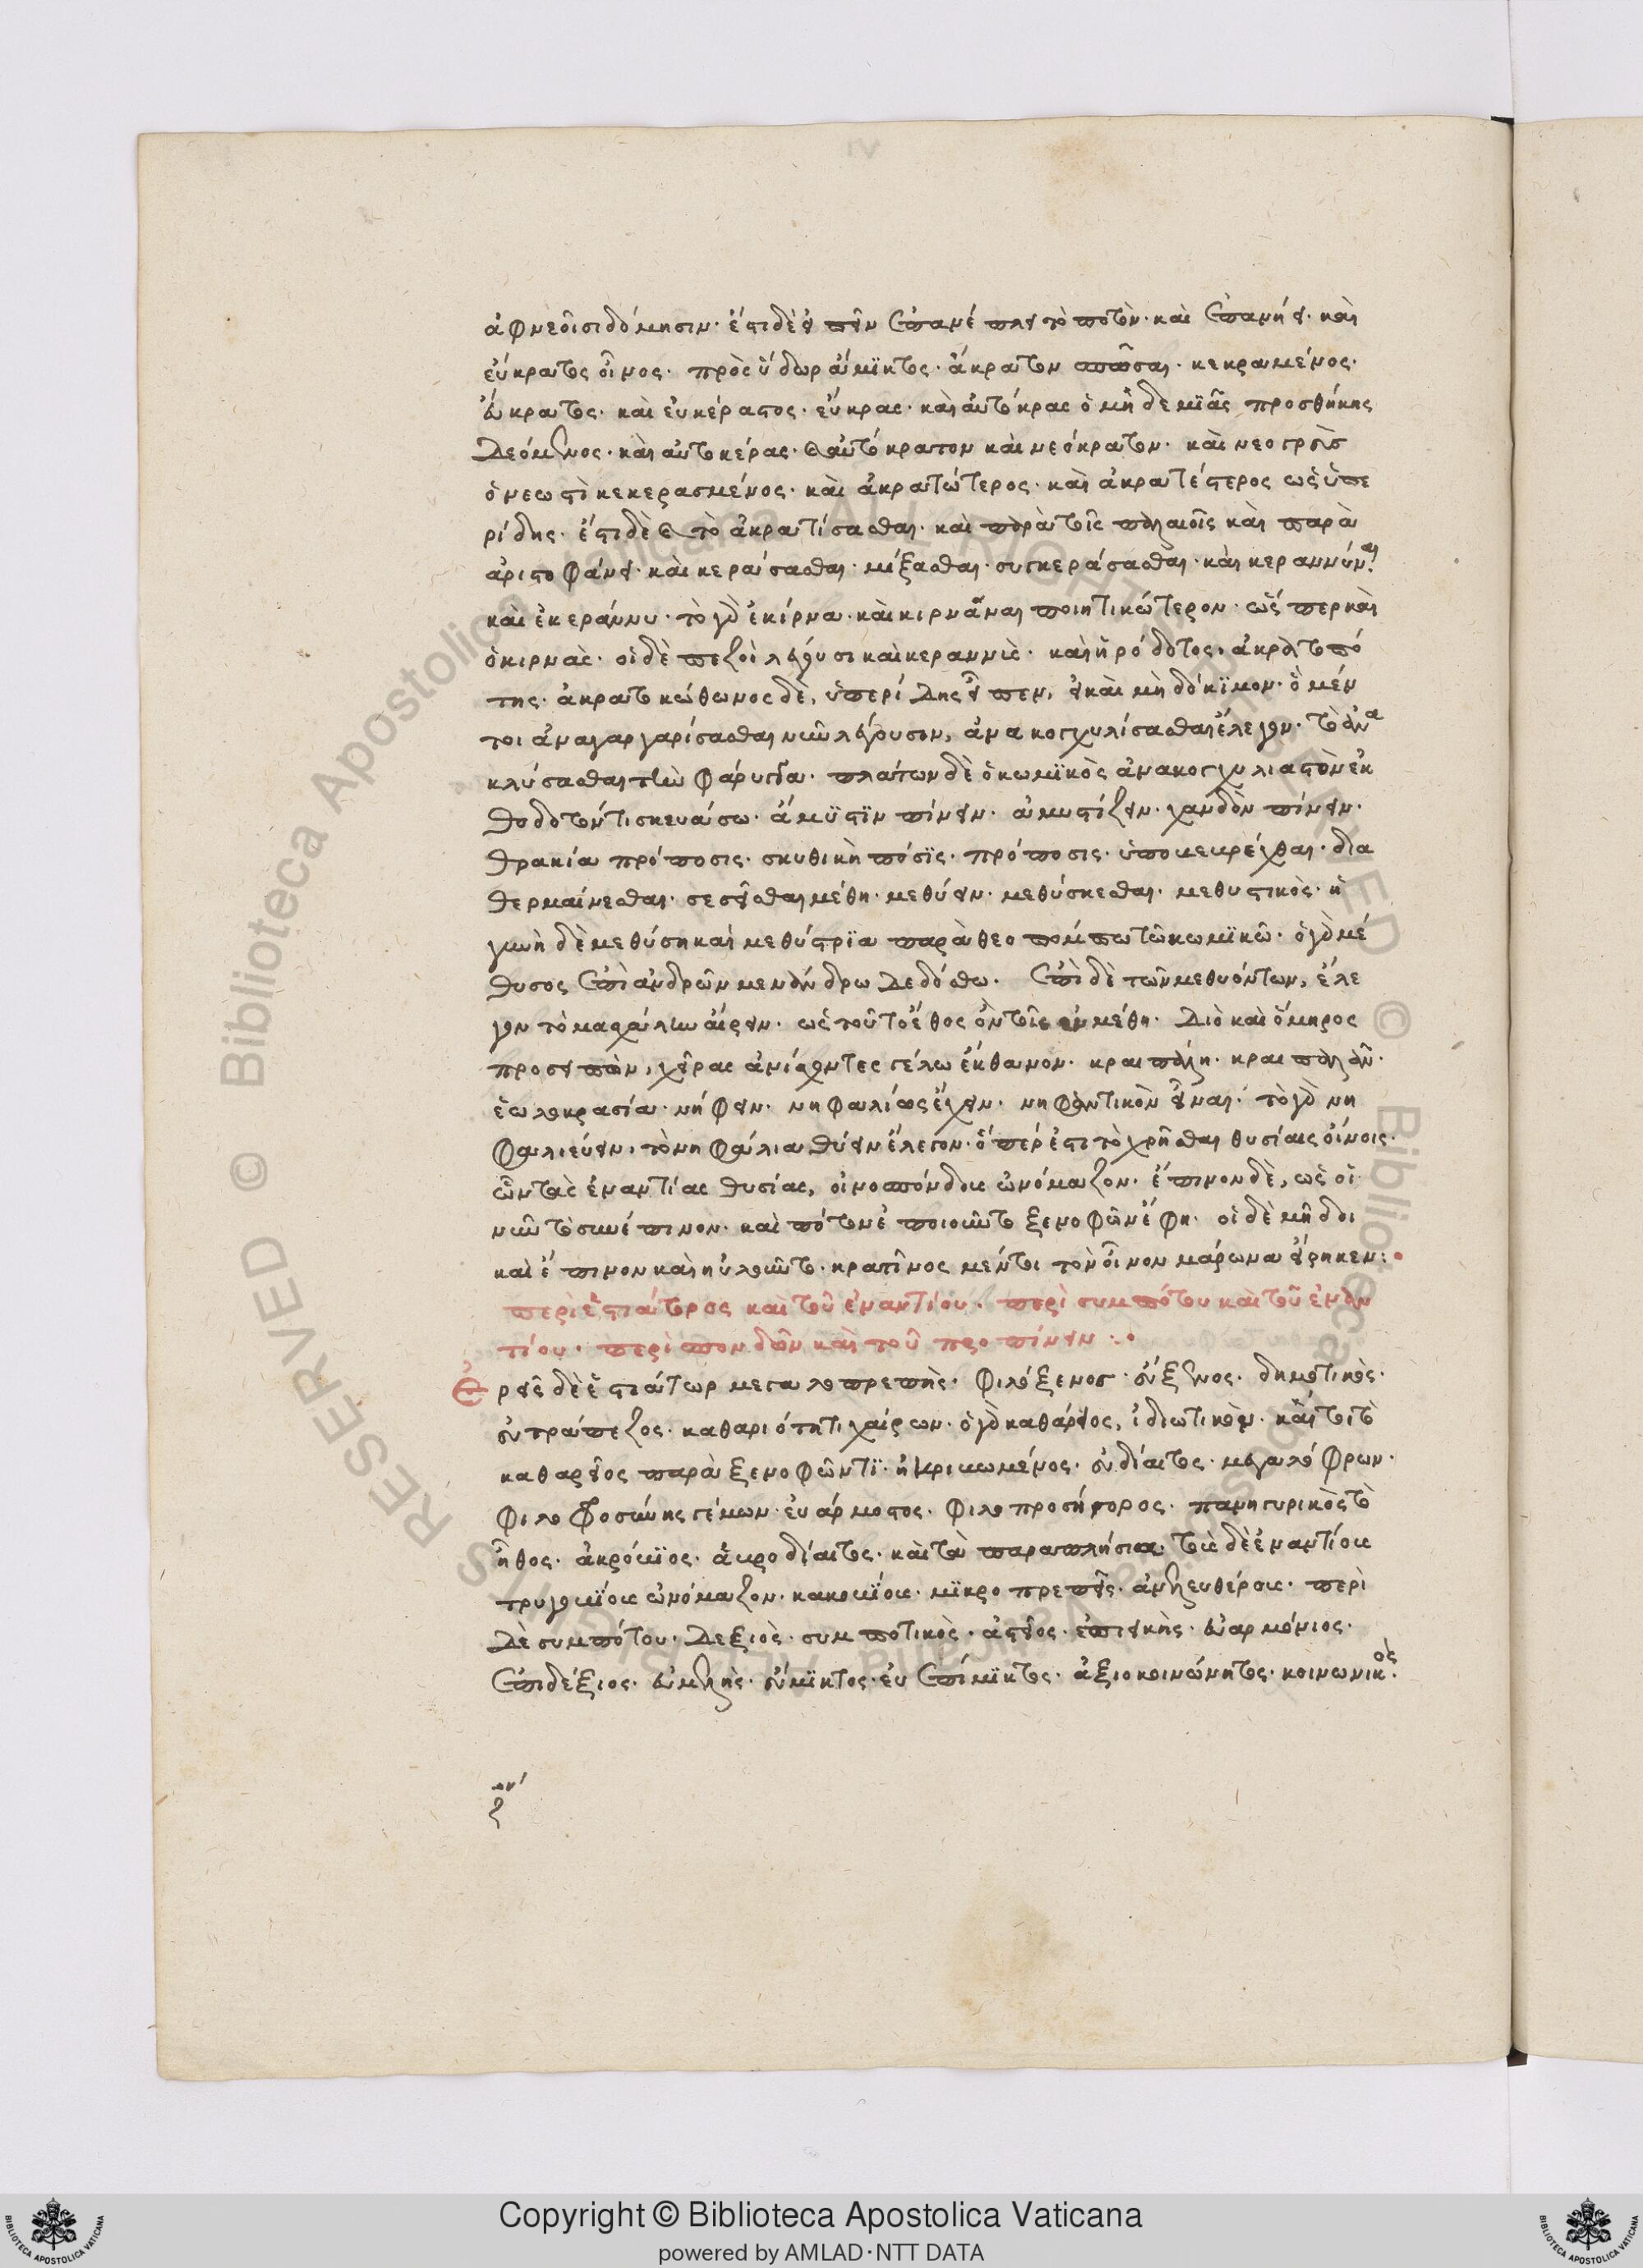 ἀφνεοῖσι δόμησιν· ἔστι δὲ εἰπεῖν ἐπανέπλει τὸ ποτὸν· καὶ ἐπανήει· καὶ
εὔκρατος οἶνος· πρὸς ὕδωρ ἄμϊκτος· ἄκρατον σπᾶσαι· κεκραμένος·
εὔκρατος· καὶ εὐκέραστος· εὔκρας· καὶ αὐτόκρας ὁ μὴ δεμϊᾶς προσθήκης
δεόμενος· καὶ αὐτοκέρας· καὶ αὐτόκρατον καὶ νεόκρατον· καὶ νεοκρὰς
ὁ νεωστὶ κεκερασμένος· καὶ ἀκρατώτερος· καὶ ἀκρατέστερος ὡς ὑπε
ρίδης· ἔστι δὲ καὶ τὸ ἀκρατίσασθαι· καὶ παρὰ τοῖς παλαιοῖς καὶ παρὰ
ἀριστοφάνει· καὶ κεράσασθαι· μίξασθαι· συγκεράσασθαι· καὶ κεραννύναι·
καὶ ἐκεράννυ· τὸ γὰρ ἐκίρνα· καὶ κιρνᾶναι ποιητικώτερον· ὥσπερ καὶ
ὁ κιρνὰς· οἱ δὲ πεζοὶ λέγουσι καὶ κεραννὺς· καὶ ἡρόδοτος, ἀκρατοπό
της· ἀκρατοκώθωνος δὲ, ὑπερίδης εἶπεν, εἰ καὶ μὴ δόκϊμον· ὃ μέν
τοι ἀναγαργαρίσασθαι νῦν λέγουσιν, ἀνακογχυλίσασθαι ἔλεγον· τὸ ἀνα
κλύσασθαι τὴν φάρυγγα· πλάτων δὲ ὁ κωμϊκὸς ἀνακογχυλιαστὸν ἐκ
θοδοτόν τι σκευάσω· ἄμϋστϊν πίνειν· ἀμυστίζειν· χανδὸν πίνειν·
θρακία πρόποσις· σκυθικὴ πόσϊς· πρόποσις· ὑποβεβρέχθαι· δια
θερμαίνεσθαι· σεσεῖσθαι μέθη· μεθύειν· μεθύσκεσθαι· μεθυστικὸς· ἡ
γυνὴ δὲ μεθύση καὶ μεθύστρϊα παρὰ θεοπόμπω τῶ κωμϊκῶ· ὁ γὰρ μέ
θυσος ἐπὶ ἀνδρῶν μενάνδρω δεδόσθω· ἐπὶ δὲ τῶν μεθυόντων, ἔλε
γον τὸ μασχάλην αἴρειν· ὡς τοῦτο ἔθος ὂν τοῖς ἐν μέθη· διὸ καὶ ὅμηρος
προσειπὼν, χεῖρας ἀνίσχοντες γέλω ἔκθανον· κραιπάλη· κραιπαλᾶν·
ἑωλοκρασία· νήφειν· νηφαλίως ἔχειν· νηφαντικὸν εἶναι· τὸ γὰρ νη
φαλιεύειν, τὸ νηφάλια θύειν ἔλεγον· ὅπέρ ἐστι τὸ χρῆσθαι θυσίαις ἀοίνοις·
ὧν τὰς ἐναντίας θυσίας, οἰνοσπόνδους ὠνόμαζον· ἔπινον δὲ, ὡς οἱ
νῦν τὸ συνέπινον· καὶ πότον ἐποιοῦντο ξενοφῶν ἔφη· οἱ δὲ μῆδοι
καὶ ἔπινον καὶ ηὐλοῦντο· κρατῖνος μέντοι τὸν οἶνον μάρωνα εἴρηκεν:·
περὶ ἑστιάτορος καὶ τοῦ ἐναντίου· περὶ συμπότου καὶ τοῦ ἐναν
τίου· περὶ σπονδῶν καὶ τοῦ προπίνειν:·
ἐρεῖς δὲ ἑστιάτωρ μεγαλοπρεπὴς· φιλόξενος· εὔξενος· δημοτικὸς·
εὐτράπεζος· καθαριότητι χαίρων· ὁ γὰρ καθάρειος, ἰδιωτικὸν· κἄν τοι τὸ
καθαρεῖος παρὰ ξενοφῶντϊ· ἠκριβωμένος· εὐδίαιτος· μεγαλόφρων·
φιλοφροσύνης γέμων· εὐάρμοστος· φιλοπροσήγορος· πανηγυρικὸς τὸ
ἦθος· ἁβρόβϊος· ἁβροδίαιτος· καὶ τὰ παραπλήσια· τοὺς δὲ ἐναντίους
τρυγοβΐους ὠνόμαζον· κακοβΐους· μϊκροπρεπεῖς· ἀνελευθέρους· περὶ
δὲ συμπότου· δεξιὸς· συμποτικὸς· ἀστεῖος· ἐπιεικὴς· εὐαρμόνιος·
ἐπιδέξιος· εὐμελὴς· εὔμϊκτος· εὐεπίμϊκτος· ἀξιοκοινώνητος· κοινωνικός·